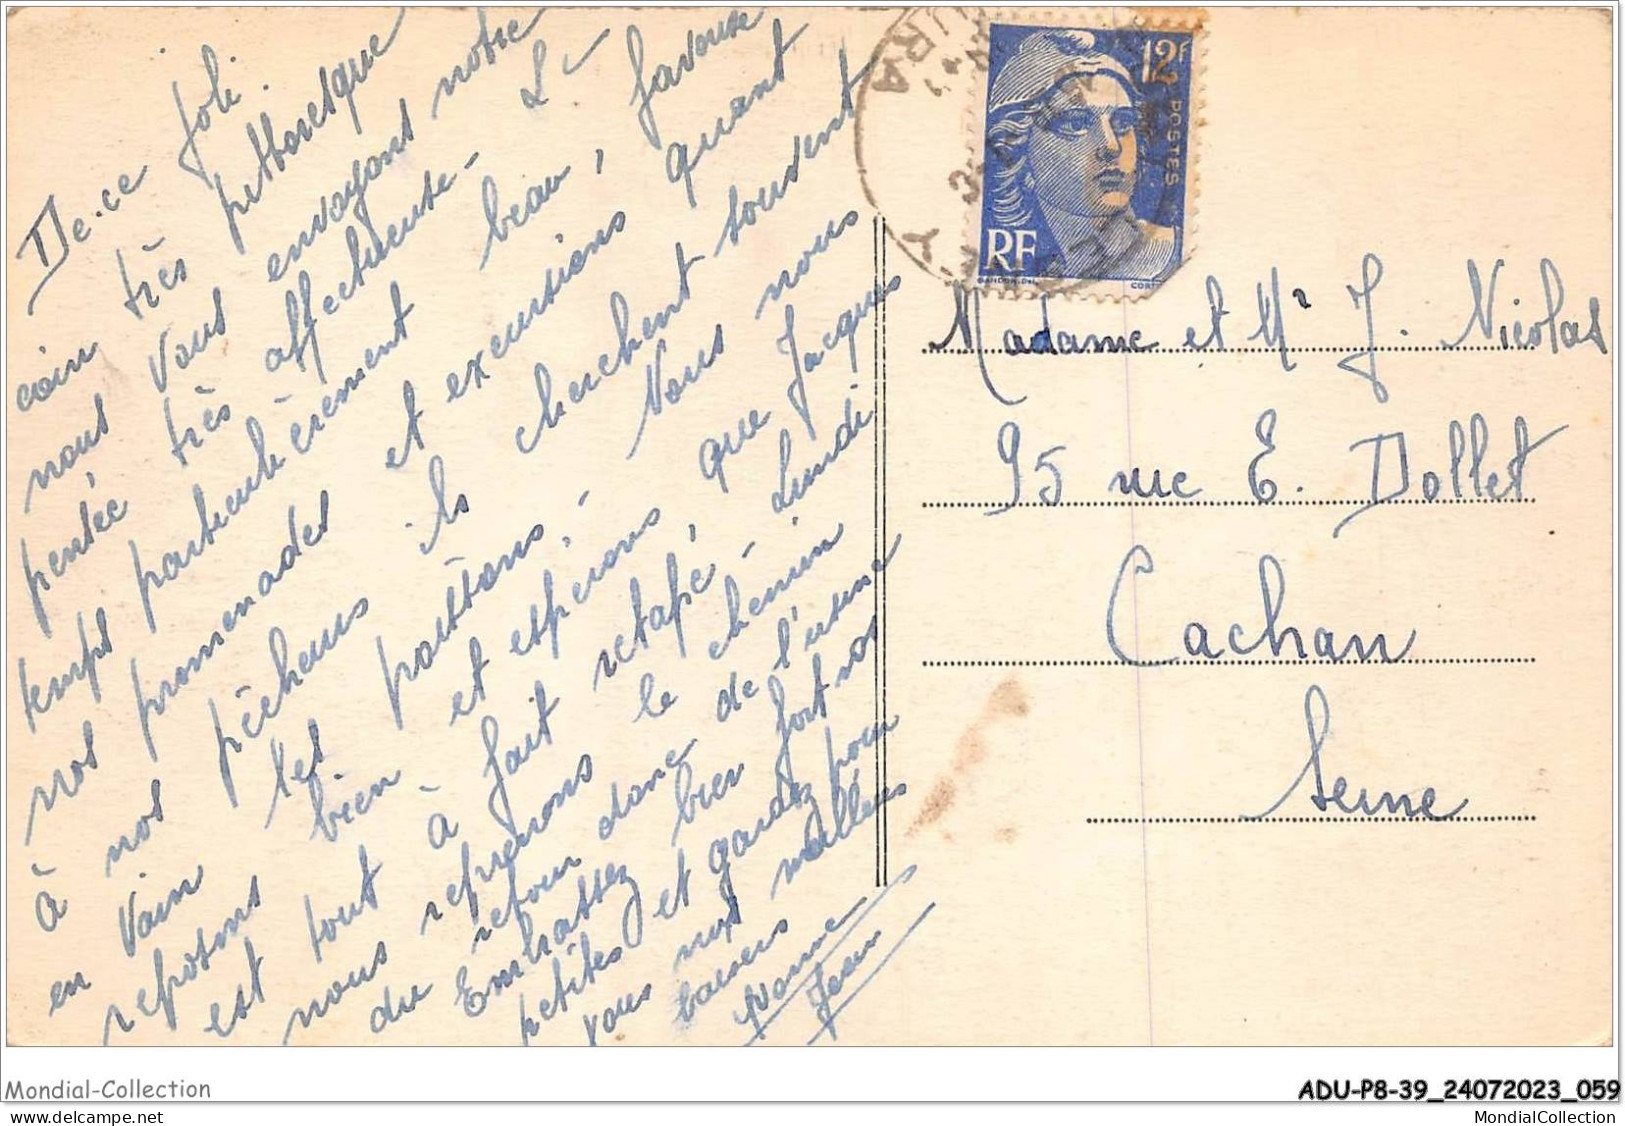 De ce joli
coin très pittoresque
nous vous envoyons notre
pensée très affectueuse - Le
temps particulièrement beau, favorise
nos promenades et excursions quant
à nos pêcheurs ils cherchent souvent
en vain les poissons. Nous nous
reposons bien et espérons que Jacques
est tout à fait retapé, Lundi
nous reprenons le chemin
du retour donc de l'usine
Embrassez bien fort nos
petites et gardez pour
vous nos meilleurs
baisers
Yvonne
Jean
12F
POSTES
RF
GANDON.Del.
JURA
Madame et Mr J. Nicolas
95 rue E. Dollet
Cachan
Seine
Mondial-Collection
ADU-P8-39_24072023_059
MondialCollection